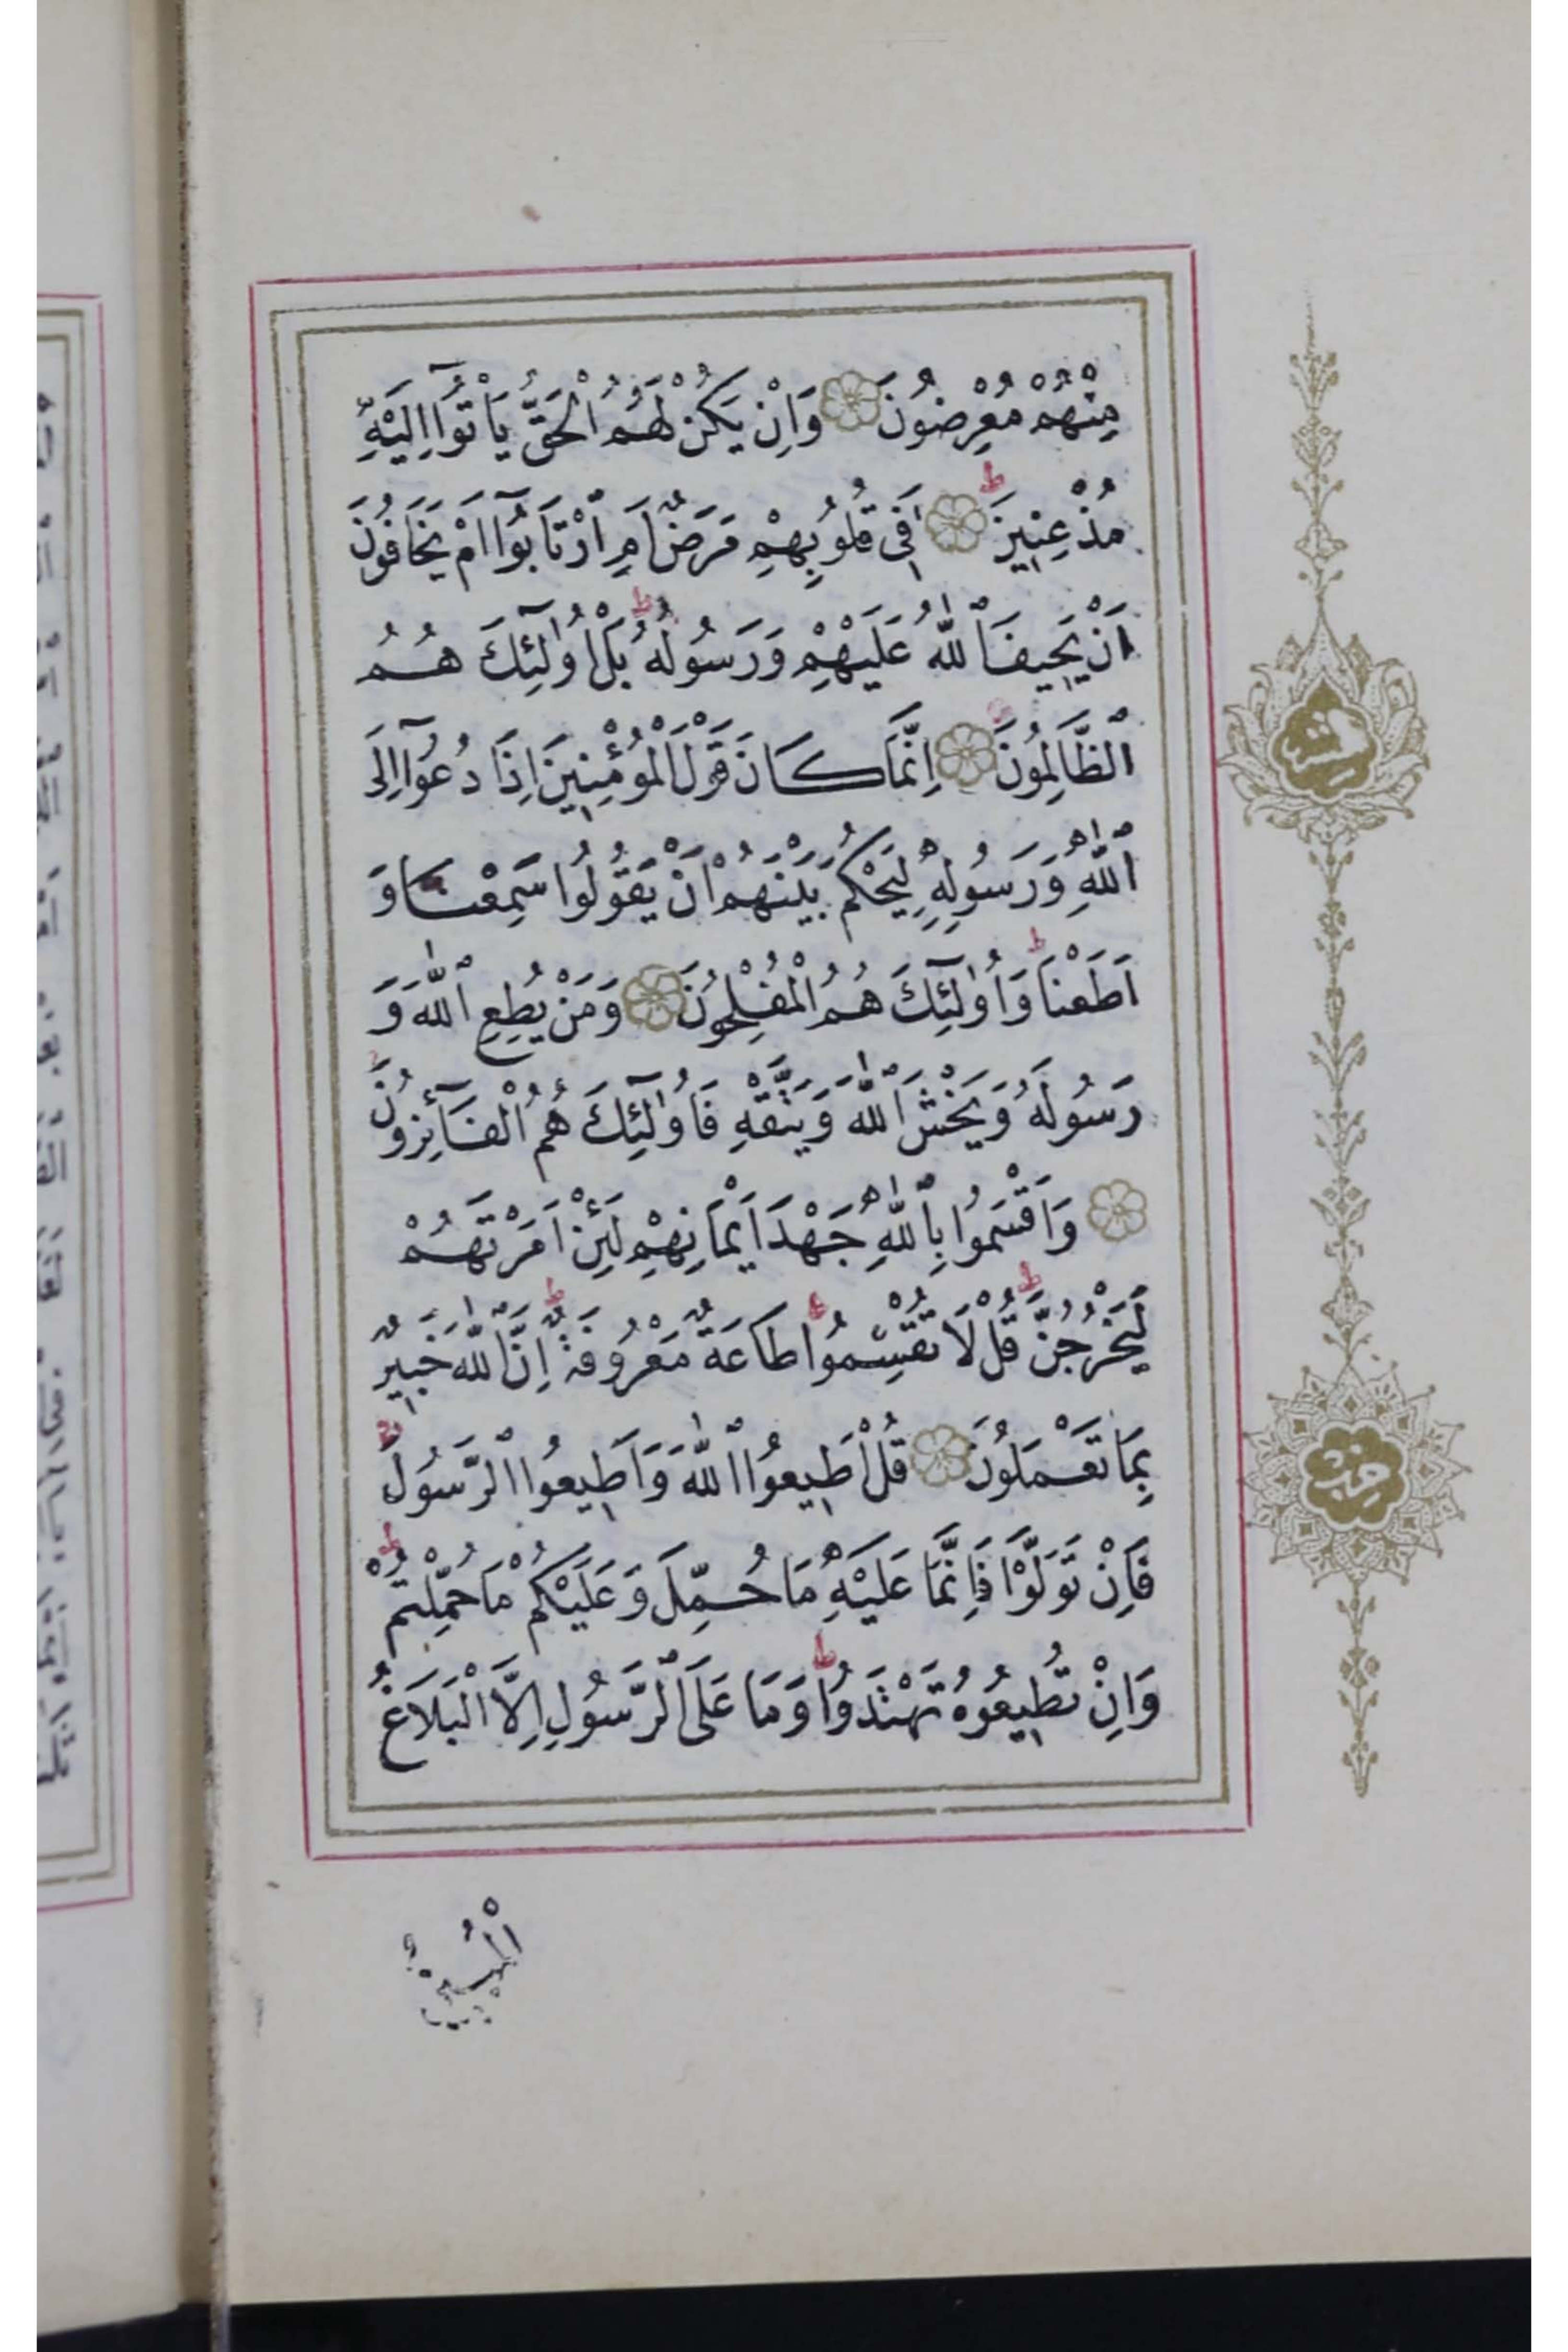 مِنْهُمْ مُعْرِضُونَ وَاِنْ يَكُنْ لَهُمُ الْحَقُّ يَاْتُوٓا اِلَيْهِ
مُذْعِنِينَ ط اَفِى قُلُوبِهِمْ مَرَضٌ اَمِ ارْتَابُوٓا اَمْ يَخَافُونَ
اَنْ يَحِيفَ اللّٰهُ عَلَيْهِمْ وَرَسُولُهُ ط بَلْ اُولٰٓئِكَ هُمُ
الظَّالِمُونَ اِنَّمَا كَانَ قَوْلَ الْمُؤْمِنِينَ اِذَا دُعُوٓا اِلَى
اللّٰهِ وَرَسُولِهِ لِيَحْكُمَ بَيْنَهُمْ اَنْ يَقُولُوا سَمِعْنَا وَ
اَطَعْنَا ط وَاُولٰٓئِكَ هُمُ الْمُفْلِحُونَ وَمَنْ يُطِعِ اللّٰهَ وَ
رَسُولَهُ وَيَخْشَ اللّٰهَ وَيَتَّقْهِ فَاُولٰٓئِكَ هُمُ الْفَآئِزُونَ
وَاَقْسَمُوا بِاللّٰهِ جَهْدَ اَيْمَانِهِمْ لَئِنْ اَمَرْتَهُمْ
لَيَخْرُجُنَّ ط قُلْ لَا تُقْسِمُوا طَاعَةٌ مَعْرُوفَةٌ ط اِنَّ اللّٰهَ خَبِيرٌ
بِمَا تَعْمَلُونَ قُلْ اَطِيعُوا اللّٰهَ وَاَطِيعُوا الرَّسُولَ
فَاِنْ تَوَلَّوْا فَاِنَّمَا عَلَيْهِ مَا حُمِّلَ وَعَلَيْكُمْ مَا حُمِّلْتُمْ ط
وَاِنْ تُطِيعُوهُ تَهْتَدُوا ط وَمَا عَلَى الرَّسُولِ اِلَّا الْبَلَاغُ
الْمُبِينُ
حزب